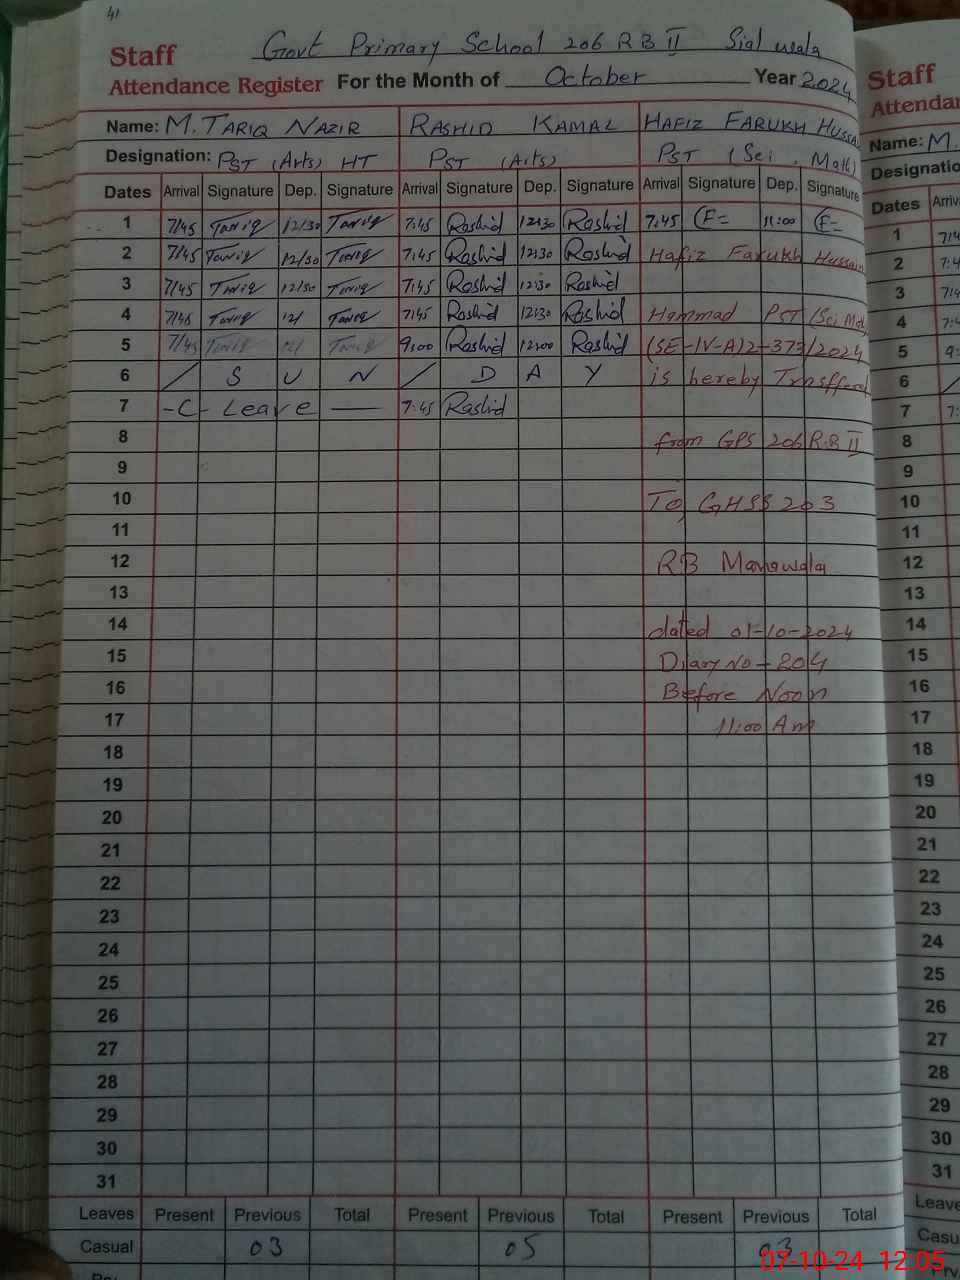 41
Govt Primary School 206 RB II Sialwala
Staff
Attendance Register For the Month of October Year 2024
Name: M. TARIQ NAZIR RASHID KAMAL HAFIZ FARUKH HUSSA
Designation: PST (Arts) HT PST (Arts) PST (Sci, Math)
Dates Arrival Signature Dep. Signature Arrival Signature Dep. Signature Arrival Signature Dep. Signature
1 7/45 Tariq 12/30 Tariq 7:45 Rashid 12:30 Rashid 7:45 11:00
2 7/45 Tariq 12/30 Tariq 7:45 Rashid 12:30 Rashid Hafiz Farukh Hussain
3 7/45 Tariq 12/30 Tariq 7:45 Rashid 12:30 Rashid
4 7/45 Tariq 12/ Tariq 7:45 Rashid 12:30 Rashid Hammad PST (Sci Mat
5 7/45 Tariq 12/ Tariq 9:00 Rashid 12:00 Rashid (SE-IV-A)2-373/2024
6 / S U N / D A Y is hereby Trnsfferd
7 -C- Leave — 7:45 Rashid
8 from GPS 206 R.B II
9
10 To GHSS 203
11
12 RB Manawala
13
14 dated 01-10-2024
15 Diary No - 204
16 Before Noon
17 11:00 Am
18
19
20
21
22
23
24
25
26
27
28
29
30
31
Leaves Present Previous Total Present Previous Total Present Previous Total
Casual 03 05 03
Staff
Attendan
Name: M.
Designatio
Dates Arriva
1 7:4
2 7:4
3 7:4
4 7:4
5 9:
6 /
7 7:
8
9
10
11
12
13
14
15
16
17
18
19
20
21
22
23
24
25
26
27
28
29
30
31
Leave
Casu
07-10-24 12:05